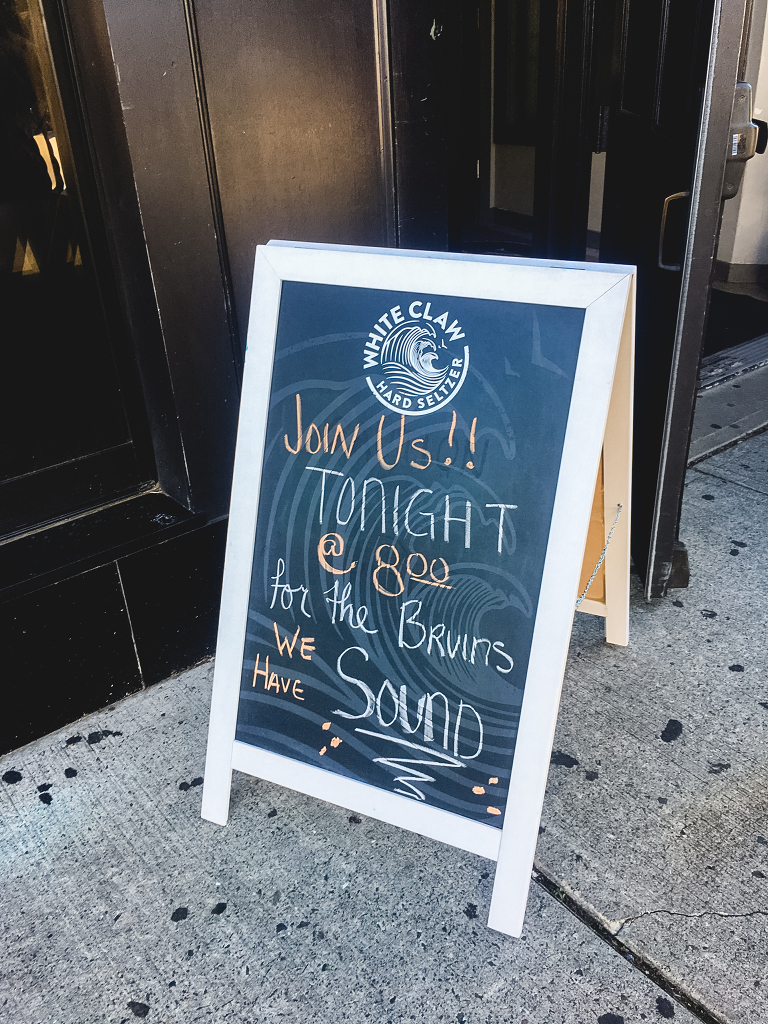 WHITE CLAW
HARD SELTZER
JOIN US!!
TONIGHT
@ 800
for the BRUINS
WE
HAVE
SOUND